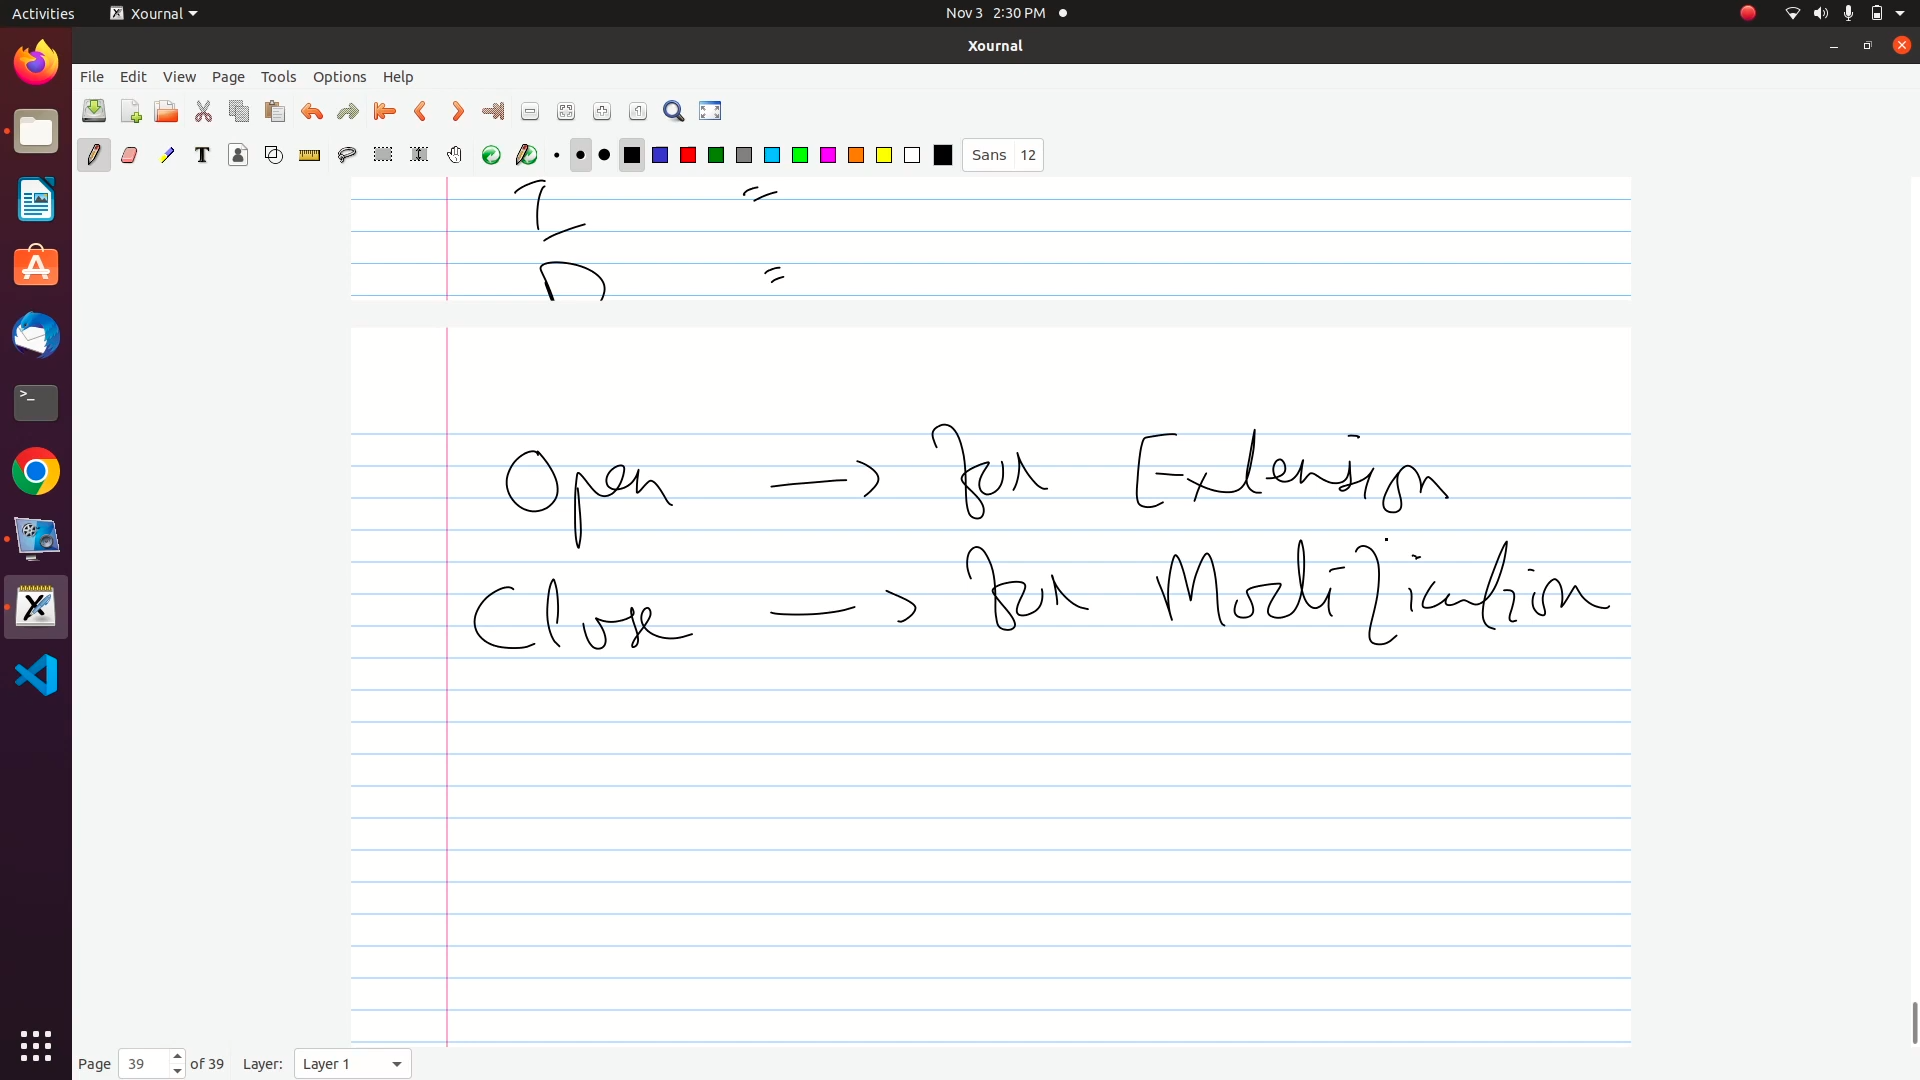 Activities Xournal Nov 3 2:30 PM
Xournal
File Edit View Page Tools Options Help
Sans 12
I =
D =
Open → for Extension
Close → for Modification
Page 39 of 39 Layer: Layer 1